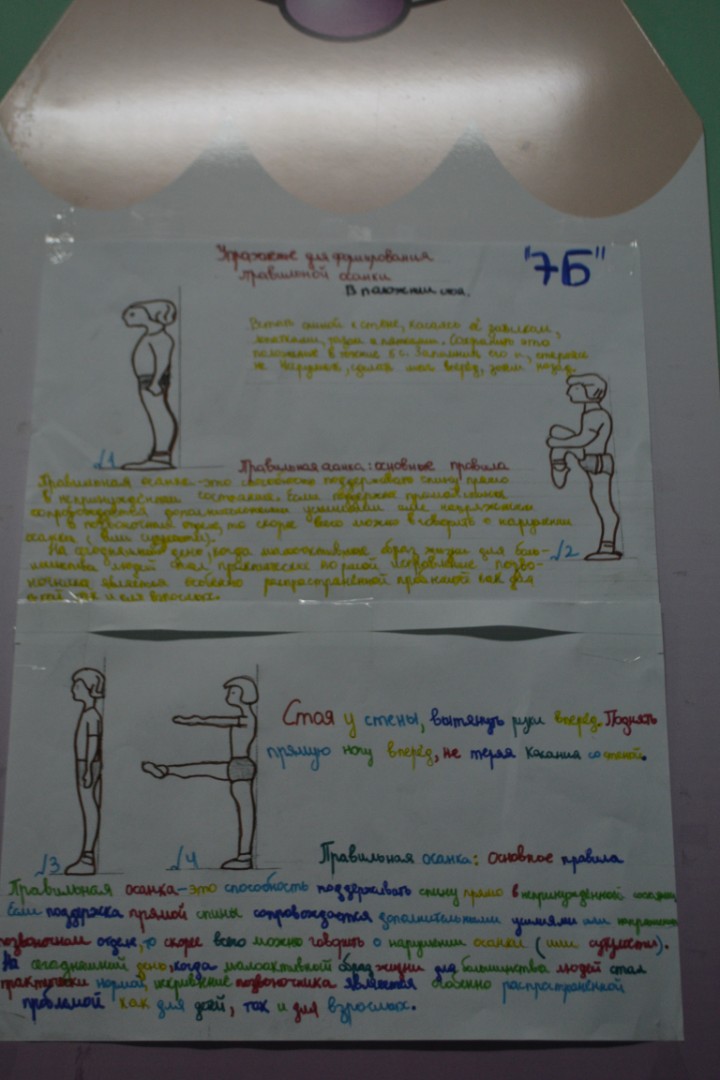 Упражнение для формирования
правильной осанки
"7Б"
В положении стоя.
Встать спиной к стене, касаясь её затылком,
лопатками, тазом и пятками. Сохранить это
положение в течение 5 с. Запомнить его и, стараясь
не нарушать, сделать шаг вперёд, затем назад.
√1
Правильная осанка: основные правила
Правильная осанка-это способность поддерживать спину прямо
в непринуждённом состоянии. Если поддержка прямой спины
сопровождается дополнительными усилиями или напряжением
в позвоночном отделе, то скорее всего можно говорить о нарушении
осанки (или сутулости).
√2
На сегодняшний день, когда малоактивный образ жизни для боль-
шинства людей стал практически нормой искривление позво-
ночника является особенно распространённой проблемой как для
детей, так и для взрослых.
Стоя у стены, вытянуть руки вперёд. Поднять
прямую ногу вперёд, не теряя касания со стеной.
√3
√4
Правильная осанка: основное правила
Правильная осанка-это способность поддерживать спину прямо в непринуждённом
Если поддержка прямой спины сопровождается дополнительными усилиями или
позвоночном отделе, то скорее всего можно говорить о нарушении осанки (или сутулости).
На сегодняшний день, когда малоактивный образ жизни для большинства людей стал
практически нормой, искривление позвоночника является особенно распространённой
проблемой как для детей, так и для взрослых.